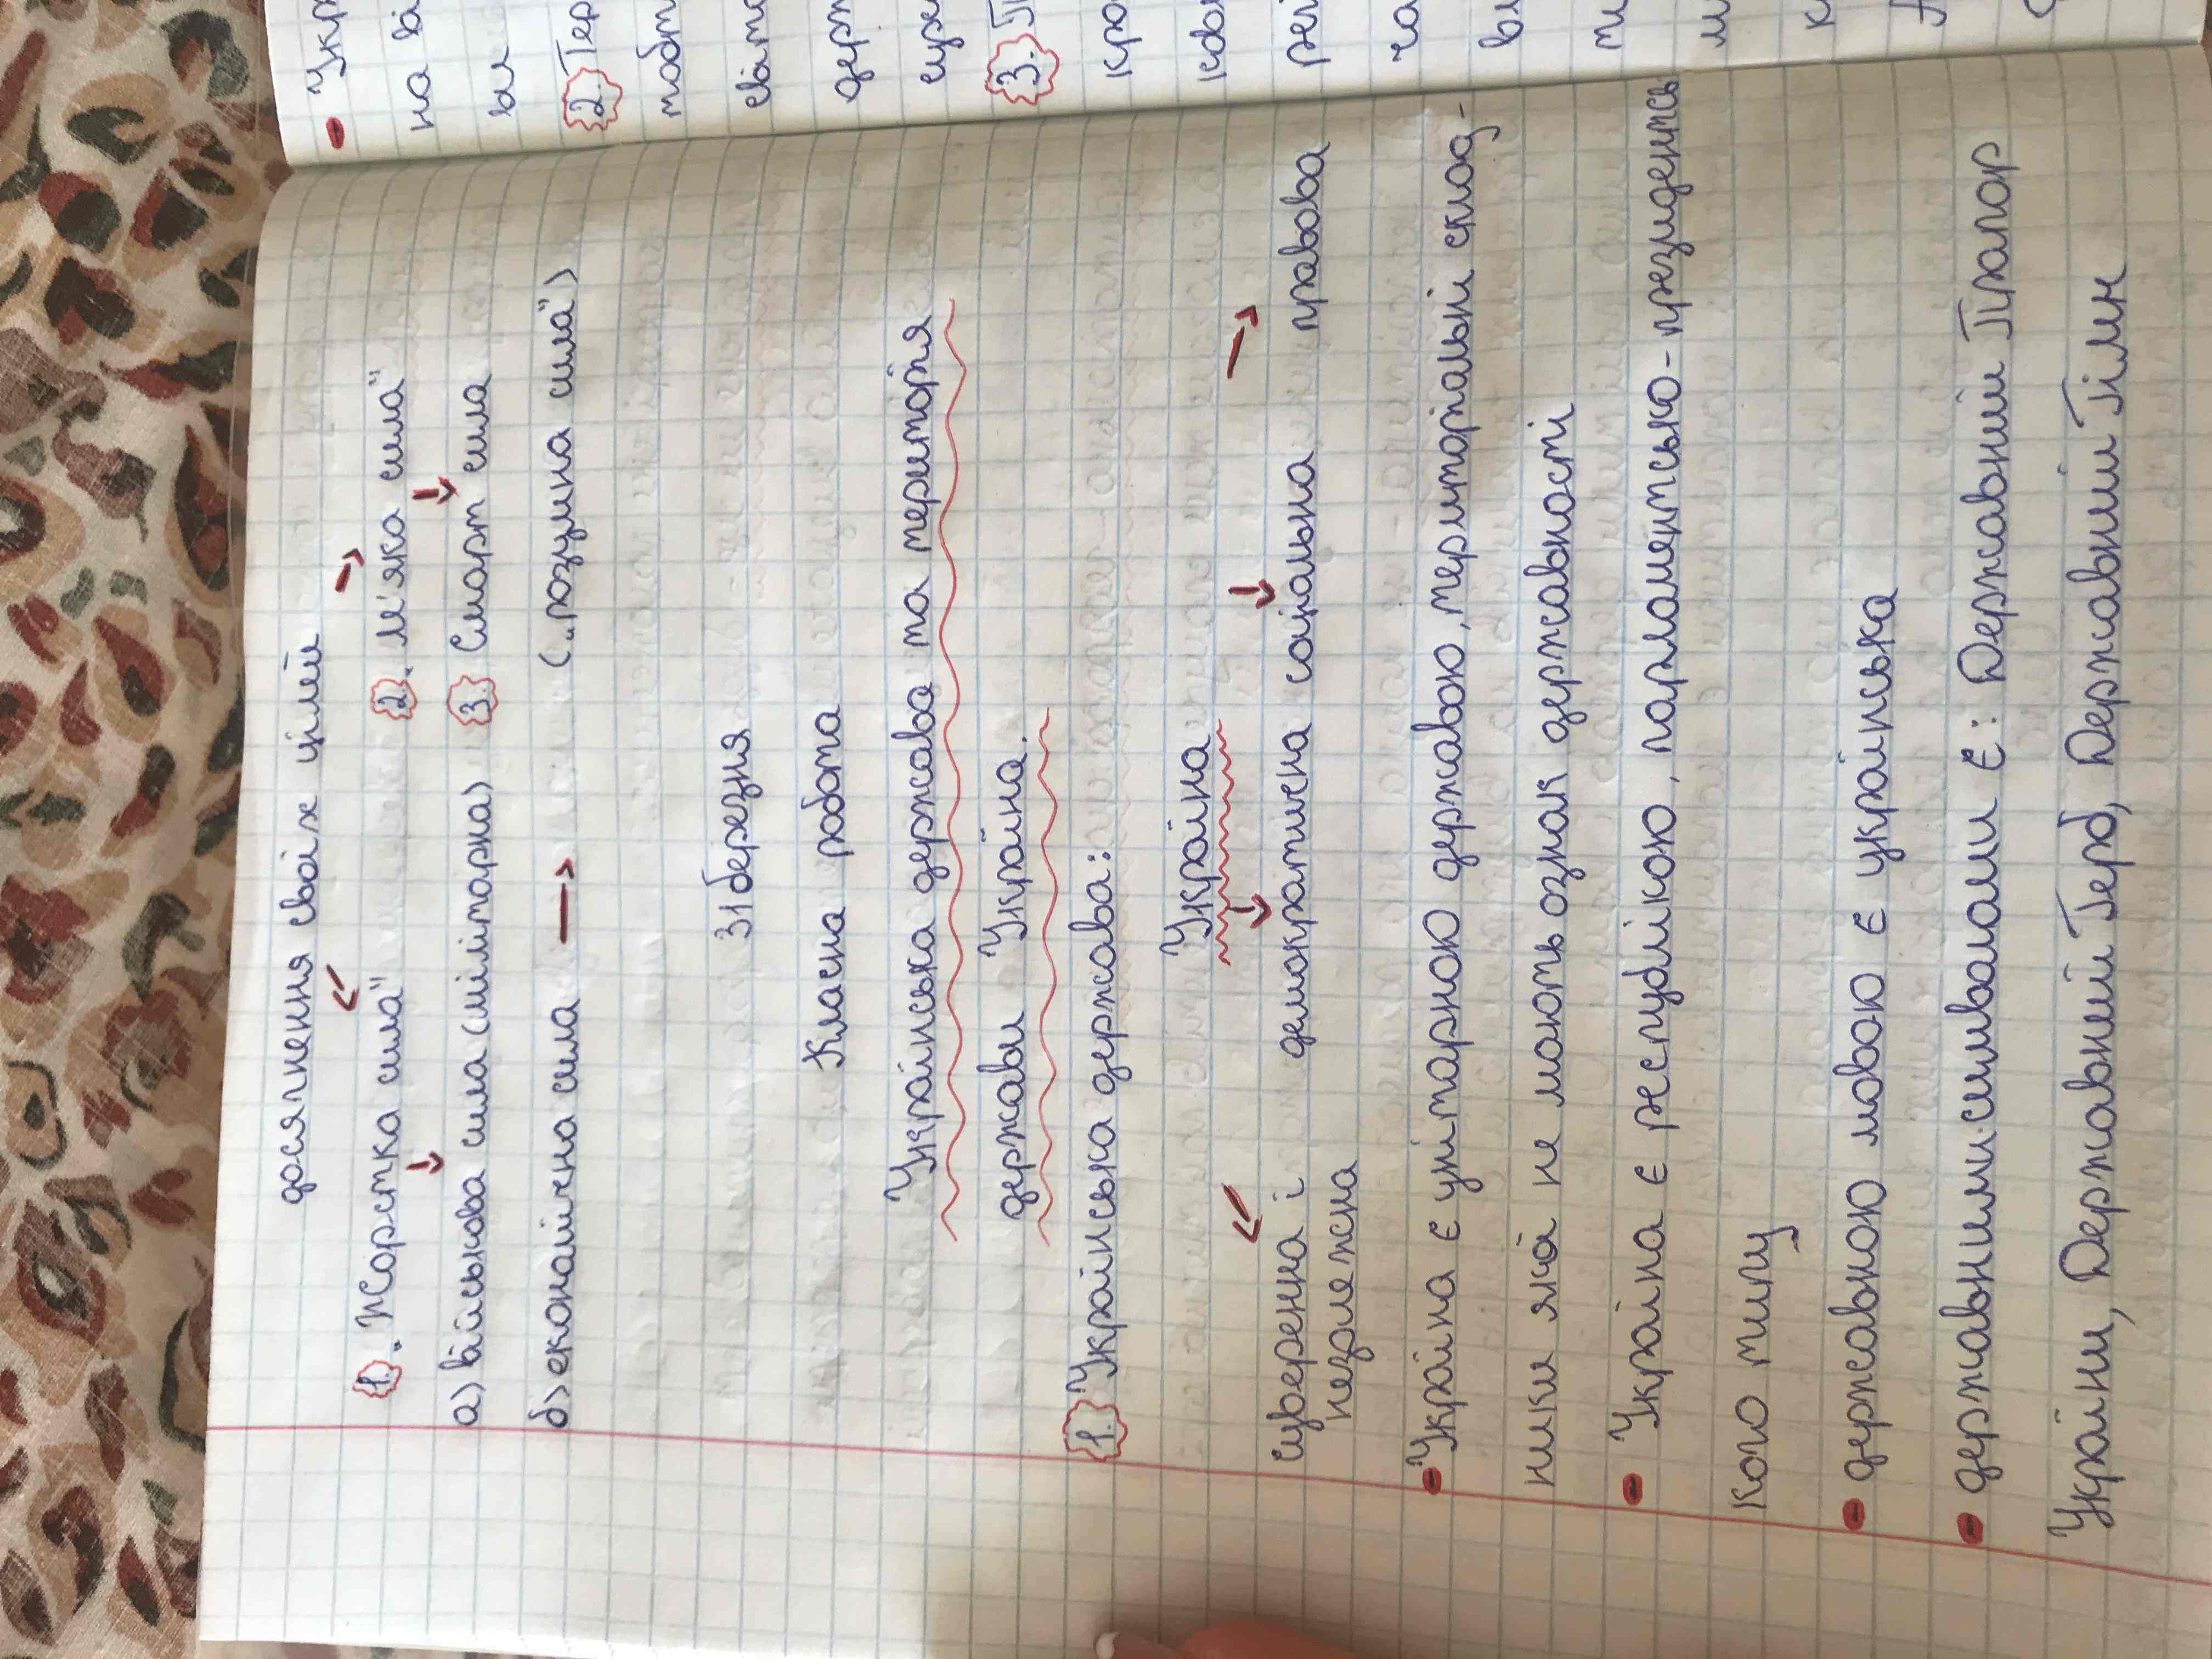 досягнення своїх цілей
1. Жорстка сила" 2. М'яка сила"
а) військова сила (мілітарна) 3. Смарт сила
б) економічна сила → („розумна сила")
31 березня
Класна робота
Українська держава та територія
держави Україна.
1. Українська держава:
Україна
суверенна і незалежна демократична соціальна правова
• Україна є унітарною державою, територіальні склад-
ники якої не мають ознак державності
• Україна є республікою, парламентсько-президентсь
кого типу
• державною мовою є українська
• державними символами є: Державний Прапор
України, Державний Герб, Державний Гімн
• Укр
на ві
ви
2. Тер
світ
держ
3.
кра
рег
ча
ви